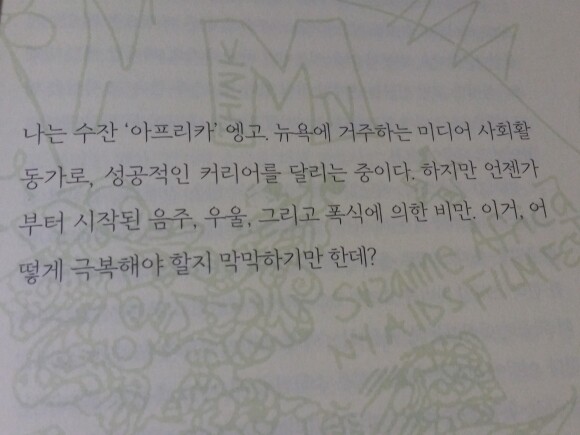 THINK
MTV
나는 수잔 ‘아프리카’ 엥고. 뉴욕에 거주하는 미디어 사회활
동가로, 성공적인 커리어를 달리는 중이다. 하지만 언젠가
부터 시작된 음주, 우울, 그리고 폭식에 의한 비만. 이거, 어
떻게 극복해야 할지 막막하기만 한데?
Suzanne Africa
NY AIDS FILM FES